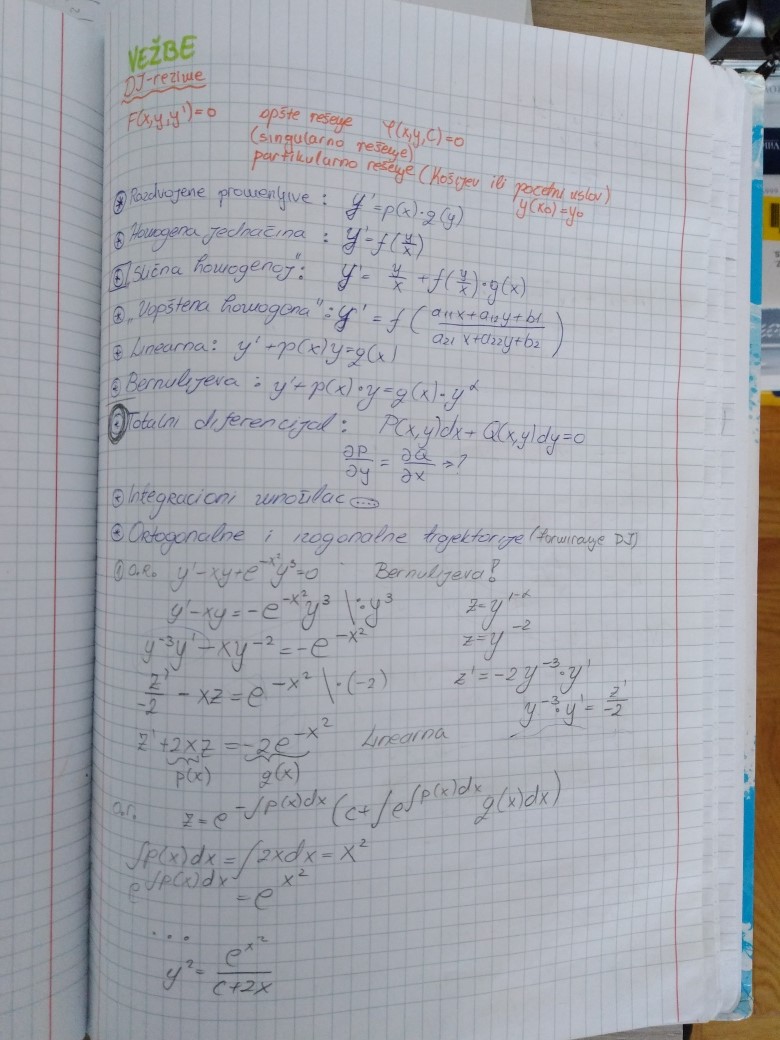 VEŽBE
DJ-rezime
F(x,y,y')=0 opšte rešenje φ(x,y,C)=0
(singularno rešenje)
partikularno rešenje (Košijev ili početni uslov)
y(x₀)=y₀
⊛ Razdvojene promenljive : y'=p(x)·g(y)
⊛ Homogena jednačina : y'=f(y/x)
⊛ „Slična homogenoj": y'= y/x + f(y/x)·g(x)
⊛ „Uopštena homogena": y' = f( (a₁₁x+a₁₂y+b₁)/(a₂₁x+a₂₂y+b₂) )
⊛ Linearna: y'+p(x)y=g(x)
⊛ Bernulijeva : y'+p(x)·y=g(x)·y^α
⊛ Totalni diferencijal : P(x,y)dx+Q(x,y)dy=0
∂P/∂y = ∂Q/∂x →?
⊛ Integracioni množilac
⊛ Ortogonalne i izogonalne trajektorije (formiranje DJ)
① o.r. y'-xy+e^(-x²)y³=0 Bernulijeva!
y'-xy=-e^(-x²)y³ \:y³ z=y^(1-α)
y⁻³y'-xy⁻²=-e^(-x²) z=y⁻²
z'/-2 - xz=e^(-x²) \·(-2) z'=-2y⁻³·y'
y⁻³·y'= z'/-2
z'+2xz=-2e^(-x²) Linearna
p(x) g(x)
o.r. z=e^(-∫p(x)dx) (c+∫e^(∫p(x)dx) g(x)dx)
∫p(x)dx=∫2xdx=x²
e^(∫p(x)dx) = e^(x²)
...
y²= e^(x²)/(c+2x)